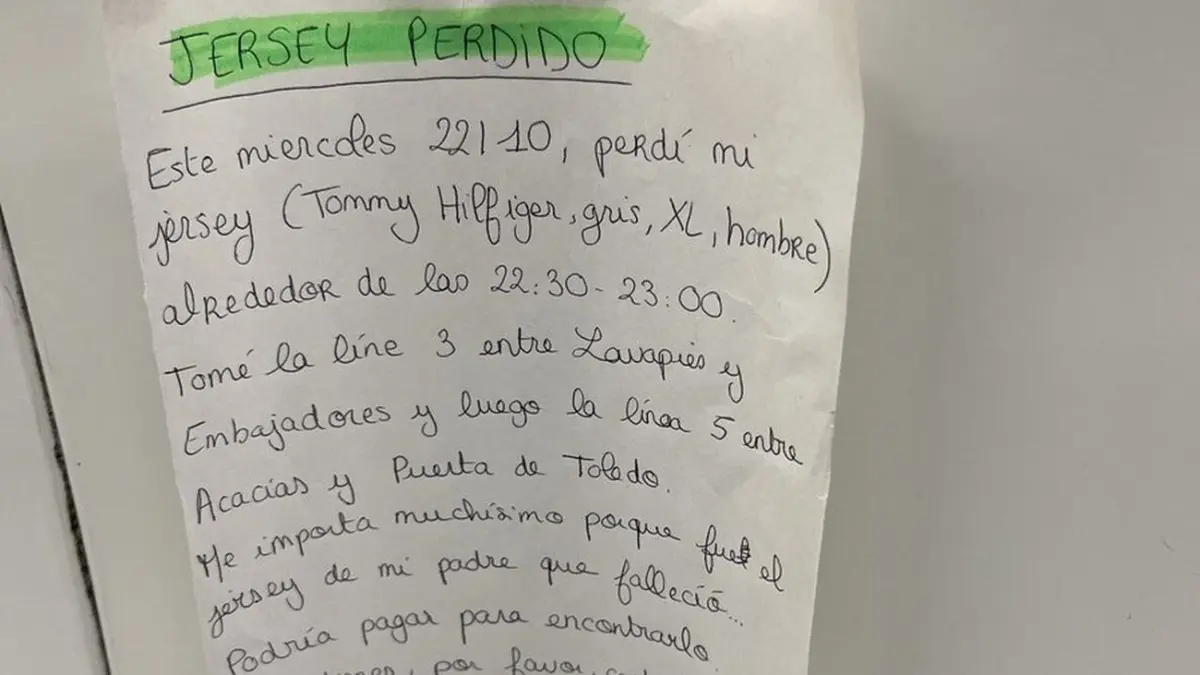 JERSEY PERDIDO
Este miercoles 22/10, perdí mi
jersey (Tommy Hilfiger, gris, XL, hombre)
alrededor de las 22:30 - 23:00.
Tomé la líne 3 entre Lavapiés y
Embajadores y luego la línea 5 entre
Acacias y Puerta de Toledo.
Me importa muchísimo porque fue el
jersey de mi padre que falleció...
Podría pagar para encontrarlo.
por favor,